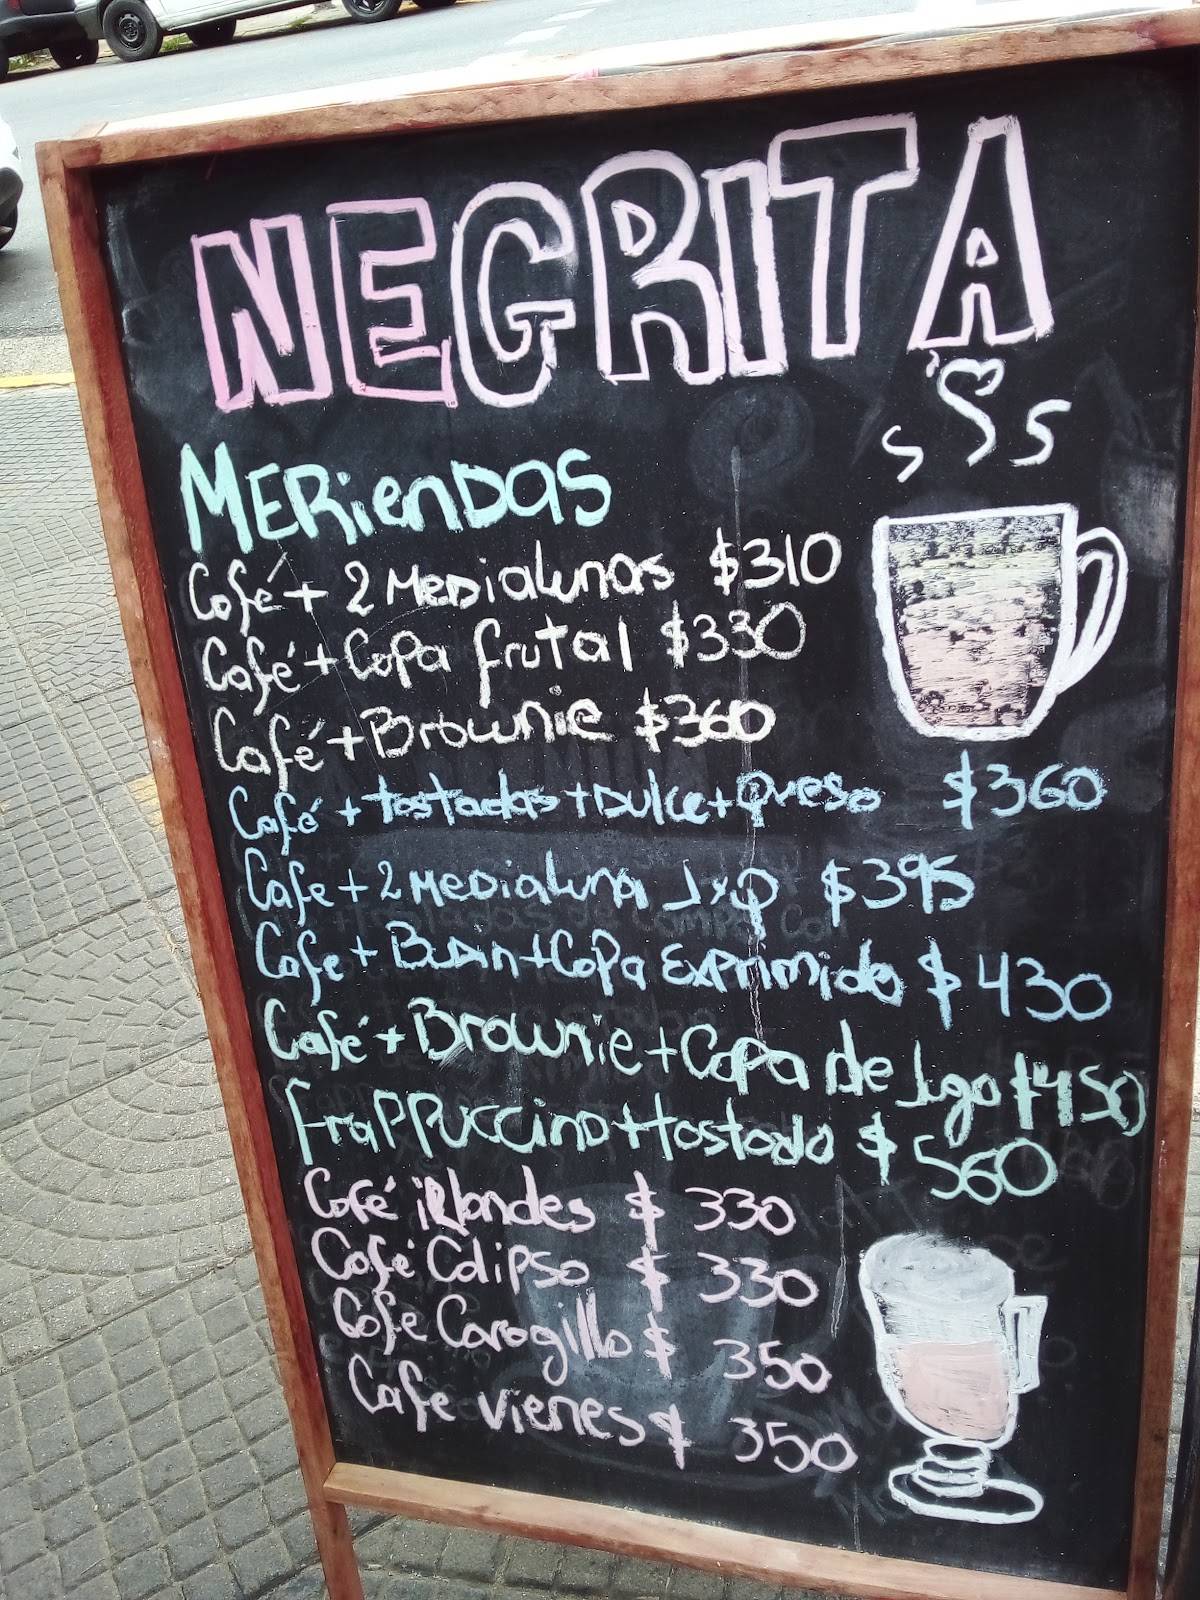 NEGRITA
MERienDAS
Café + 2 MeDialunas $310
Café + Copa frutal $330
Café + Brownie $360
Café + tostadas + Dulce + Queso $360
Cafe + 2 MeDialuna JxQ $395
Cafe + Budin + Copa Exprimido $430
Café + Brownie + Copa de Jgo $450
Frappuccino + tostado $560
Café irlandes $ 330
Café Calipso $ 330
Cafe Carogillo $ 350
Cafe vienes $ 350